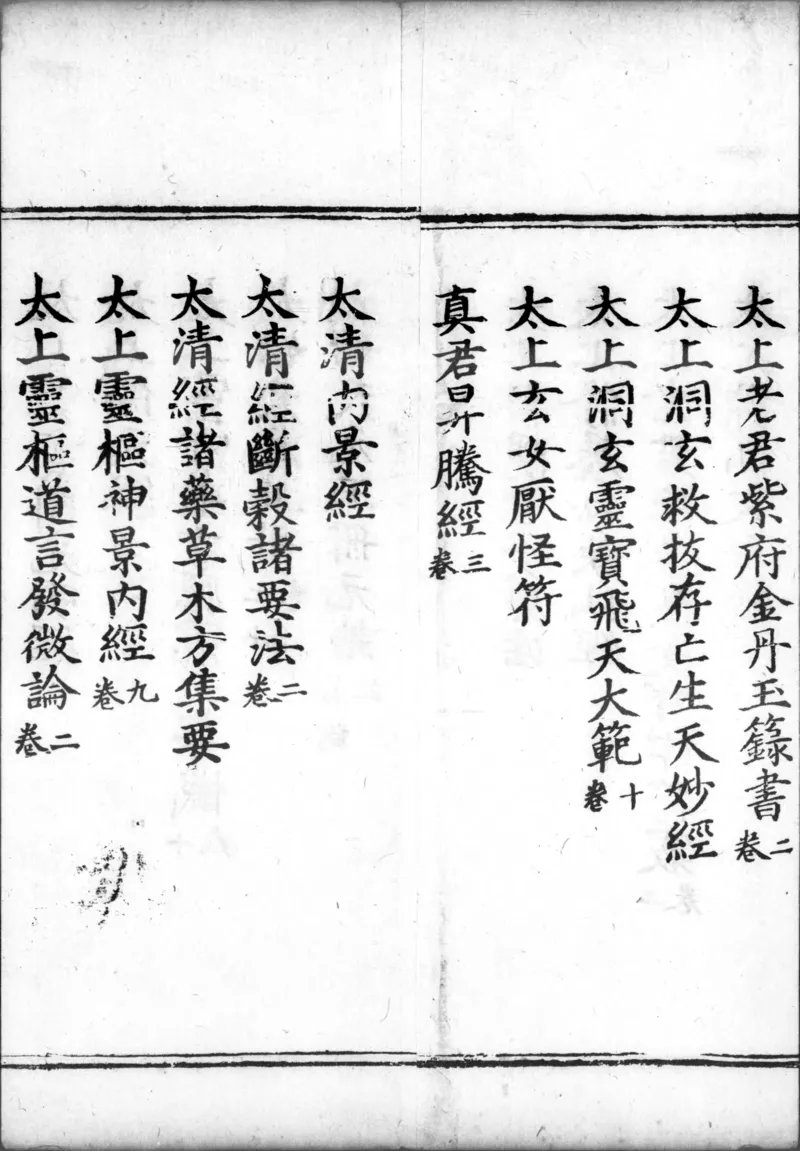 太上老君紫府金丹玉籙書二卷
太上洞玄救拔存亡生天妙經
太上洞玄靈寶飛天大範十卷
太上玄女厭怪符
真君昇騰經三卷
太清內景經
太清經斷穀諸要法二卷
太清經諸藥草木方集要
太上靈樞神景內經九卷
太上靈樞道言發微論二卷